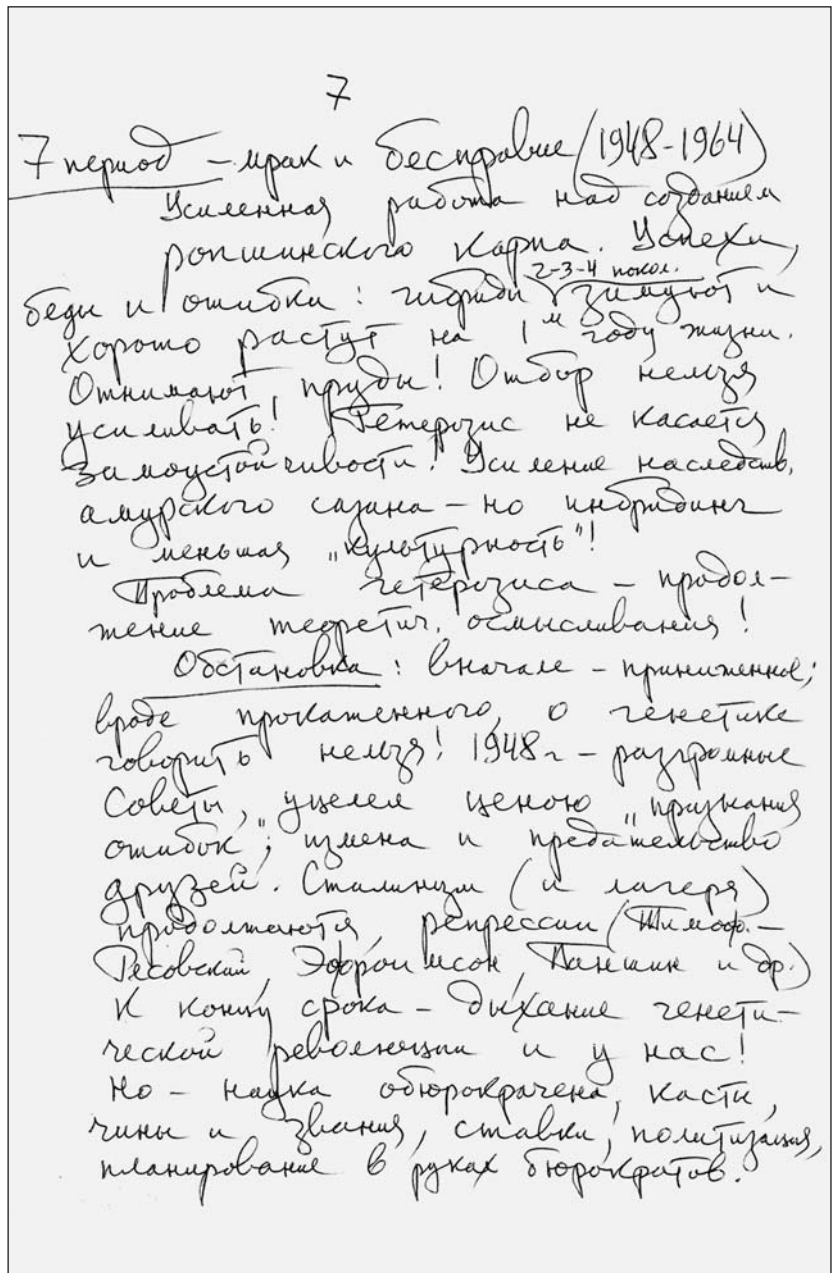 7
7 период – мрак и бесправие (1948-1964)
Усиленная работа над созданием
ропшинского карпа. Успехи,
2-3-4 покол.
беды и ошибки: гибриды зимуют и
хорошо растут на 1м году жизни.
Отнимают пруды! Отбор нельзя
усиливать! Гетерозис не касается
зимоустойчивости! Усиление наследств.
амурского сазана – но инбридинг
и меньшая „культурность"!
Проблема гетерозиса – продол-
жение теоретич. осмысливания!
Обстановка: вначале – приниженное;
вроде прокаженного, о генетике
говорить нельзя! 1948г – разгромные
Советы, уцелел ценою „признания
ошибок"; измена и предательство
друзей. Сталинизм (и лагеря)
продолжаются, репрессии (Тимоф.-
Ресовский, Эфроимсон, Паншин и др.)
К концу срока – дыхание генети-
ческой революции и у нас!
Но – наука обюрокрачена, касты,
чины и звания, ставки, политизация,
планирование в руках бюрократов.